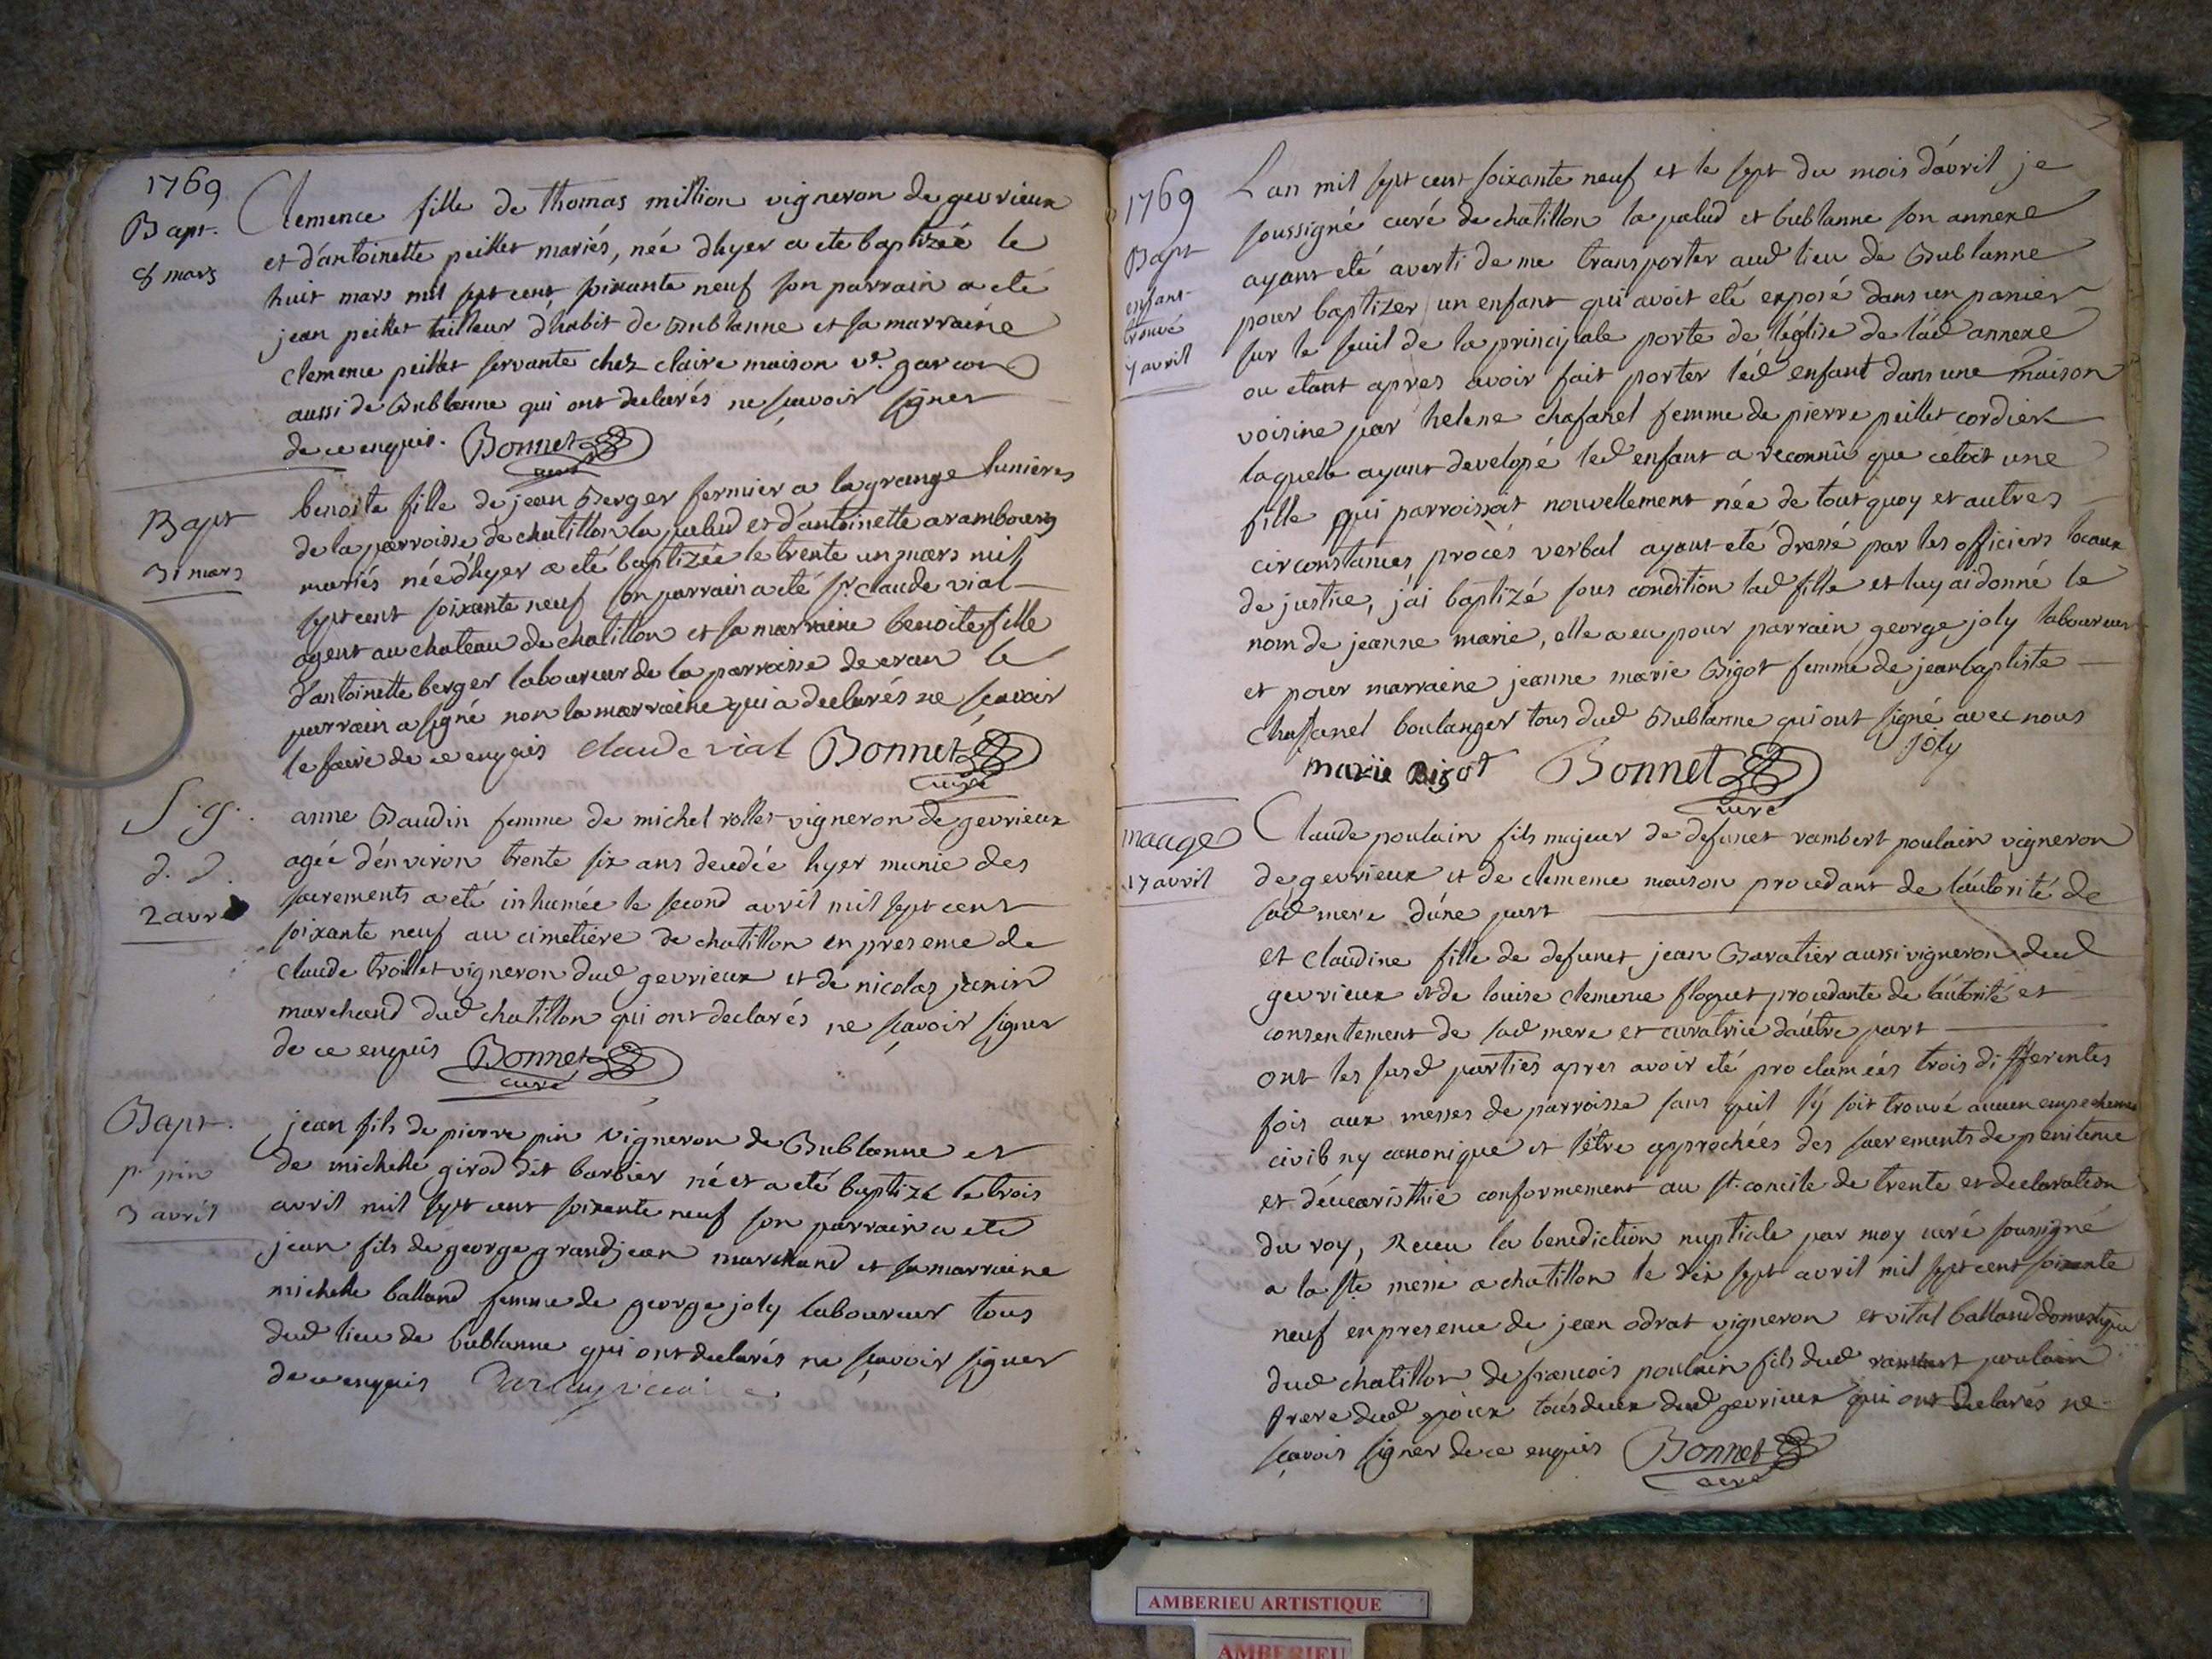 1769
Bapt.
8 mars
Clemence fille de thomas million vigneron de gevrieux
et d'antoinette peillet mariés, née d'hyer a eté baptizeé le
huit mars mil sept cent soixante neuf son parrain a eté
jean peillet tailleur d'habit de Bublanne et sa marraine
clemence peillet servante chez claire maison ve. garcon
aussi de Bublanne qui ont declarés ne sçavoir signer
de ce enquis. Bonnet
curé
Bapt
31 mars
benoite fille de jean Berger fermier a la grange lunieres
de la parroisse de chatillon la palud et d'antoinette arambourg
mariés née d'hyer a eté baptizée le trente un mars mil
sept cent soixante neuf son parrain a eté sr. claude vial
agent au chateau de chatillon et sa marraine benoite fille
d'antoinette berger laboureur de la parroisse de cran le
parrain a signé non la marraine qui a declarés ne sçavoir
le faire de ce enquis claude vial Bonnet
curé
S. g.
d. d.
2 avr
anne Baudin femme de michel rollet vigneron de gevrieux
agée d'environ trente six ans decedée hyer munie des
sacrements a eté inhumée le second avril mil sept cent
soixante neuf au cimetiere de chatillon en presence de
claude troillet vigneron dud gevrieux et de nicolas janin
marchand dud chatillon qui ont declarés ne sçavoir signer
de ce enquis Bonnet
curé
Bapt.
pr pin
3 avril
jean fils de pierre pin vigneron de Bublanne et
de michelle girod dit barbier né et a eté baptizé le trois
avril mil sept cent soixante neuf son parrain a eté
jean fils de george grandjean marchand et sa marraine
michelle balland femme de george joly laboureur tous
dud lieu de bublanne qui ont declarés ne sçavoir signer
de ce enquis
1769
Bapt
enfant
trouvé
7 avril
L an mil sept cent soixante neuf et le sept du mois d'avril je
soussigné curé de chatillon la palud et bublanne son annexe
ayant eté averti de me transporter aud lieu de Bublanne
pour baptizer un enfant qui avoit eté exposé dans un panier
sur le seuil de la principale porte de l'église de lad annexe
ou etant apres avoir fait porter led enfant dans une maison
voisine par helene chafanel femme de pierre peillet cordier
laquelle ayant developé led enfant a reconnû que c'etoit une
fille qui parroissoit nouvellement née de tout quoy et autres
circonstances procès verbal ayant eté dressé par les officiers locaux
de justice, j'ai baptizé sous condition lad fille et luy ai donné le
nom de jeanne marie, elle a eu pour parrain george joly laboureur
et pour marraine jeanne marie Bigot femme de jean baptiste
chafanel boulanger tous dud Bublanne qui ont signé avec nous
joly
marie Bigot Bonnet
curé
mariage
17 avril
Claude poulain fils majeur de defunct rambert poulain vigneron
de gevrieux et de clemence maison procedant de l'autorité de
sad mere d'une part
et claudine fille de defunct jean Baratier aussi vigneron dud
gevrieux et de louise clemence floquet procedante de l'autorité et
consentement de sad mere et curatrice d'autre part
ont les susd parties apres avoir eté proclamées trois differentes
fois aux messes de parroisse sans qu'il s'y soit trouvé aucun empechement
civil ny canonique et s'être approchées des sacrements de penitence
et d'eucaristhie conformement au st. concile de trente et declaration
du roy, Receu la benediction nuptiale par moy curé soussigné
a la ste messe a chatillon le dix sept avril mil sept cent soixante
neuf en presence de jean odrat vigneron et vital balland domestique
dud chatillon de francois poulain fils dud rambert poulain
frere dud epoux tous deux dud gevrieux qui ont declarés ne
sçavoir signer de ce enquis Bonnet
curé
AMBERIEU ARTISTIQUE
AMBERIEU